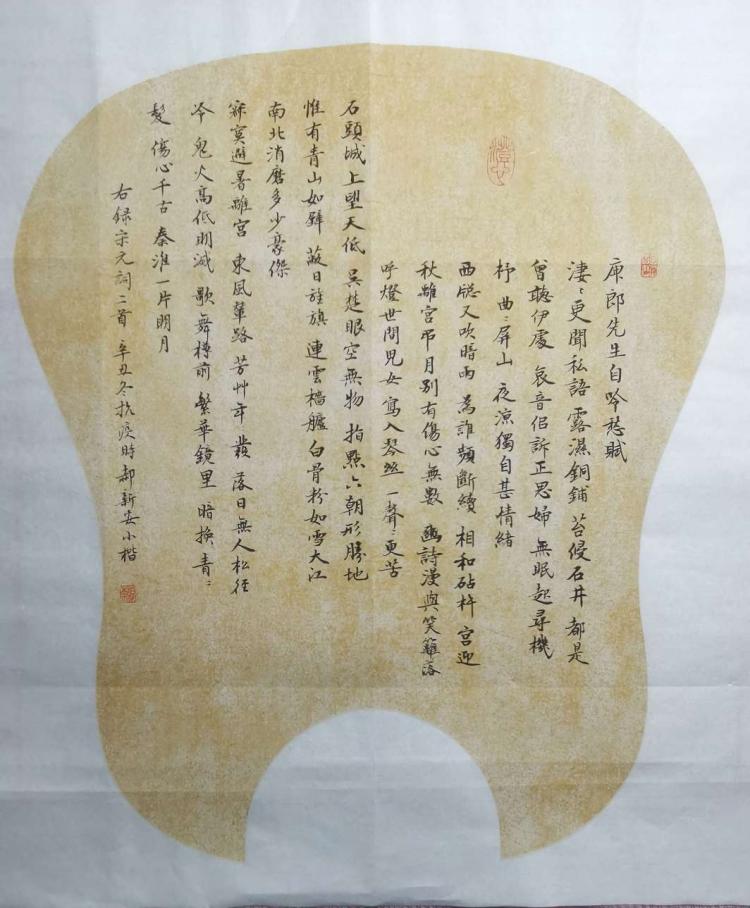 庾郎先生自吟愁賦
淒〻更聞私語 露濕銅鋪 苔侵石井 都是
曾聽伊處 哀音佀訴正思婦 無眠起尋機
杼 曲〻屏山 夜涼獨自甚情緒
西牕又吹暗雨 為誰頻斷續 相和砧杵 宮迎
秋 離宮弔月別有傷心無數 豳詩漫與笑籬落
呼燈世間兒女 寫入琴絲 一聲〻更苦
石頭城上望天低 吳楚眼空無物 指點六朝形勝地
惟有青山如壁 蔽日旌旗 連雲檣艫 白骨粉如雪大江
南北消磨多少豪傑
寂寞避暑離宮 東風輦路 芳艸年〻發 落日無人松徑
冷 鬼火高低明滅 歌舞樽前 繁華鏡里 暗換青〻
髮 傷心千古 秦淮一片明月
右録宋元詞二首 辛丑冬抗疫時郝新安小楷